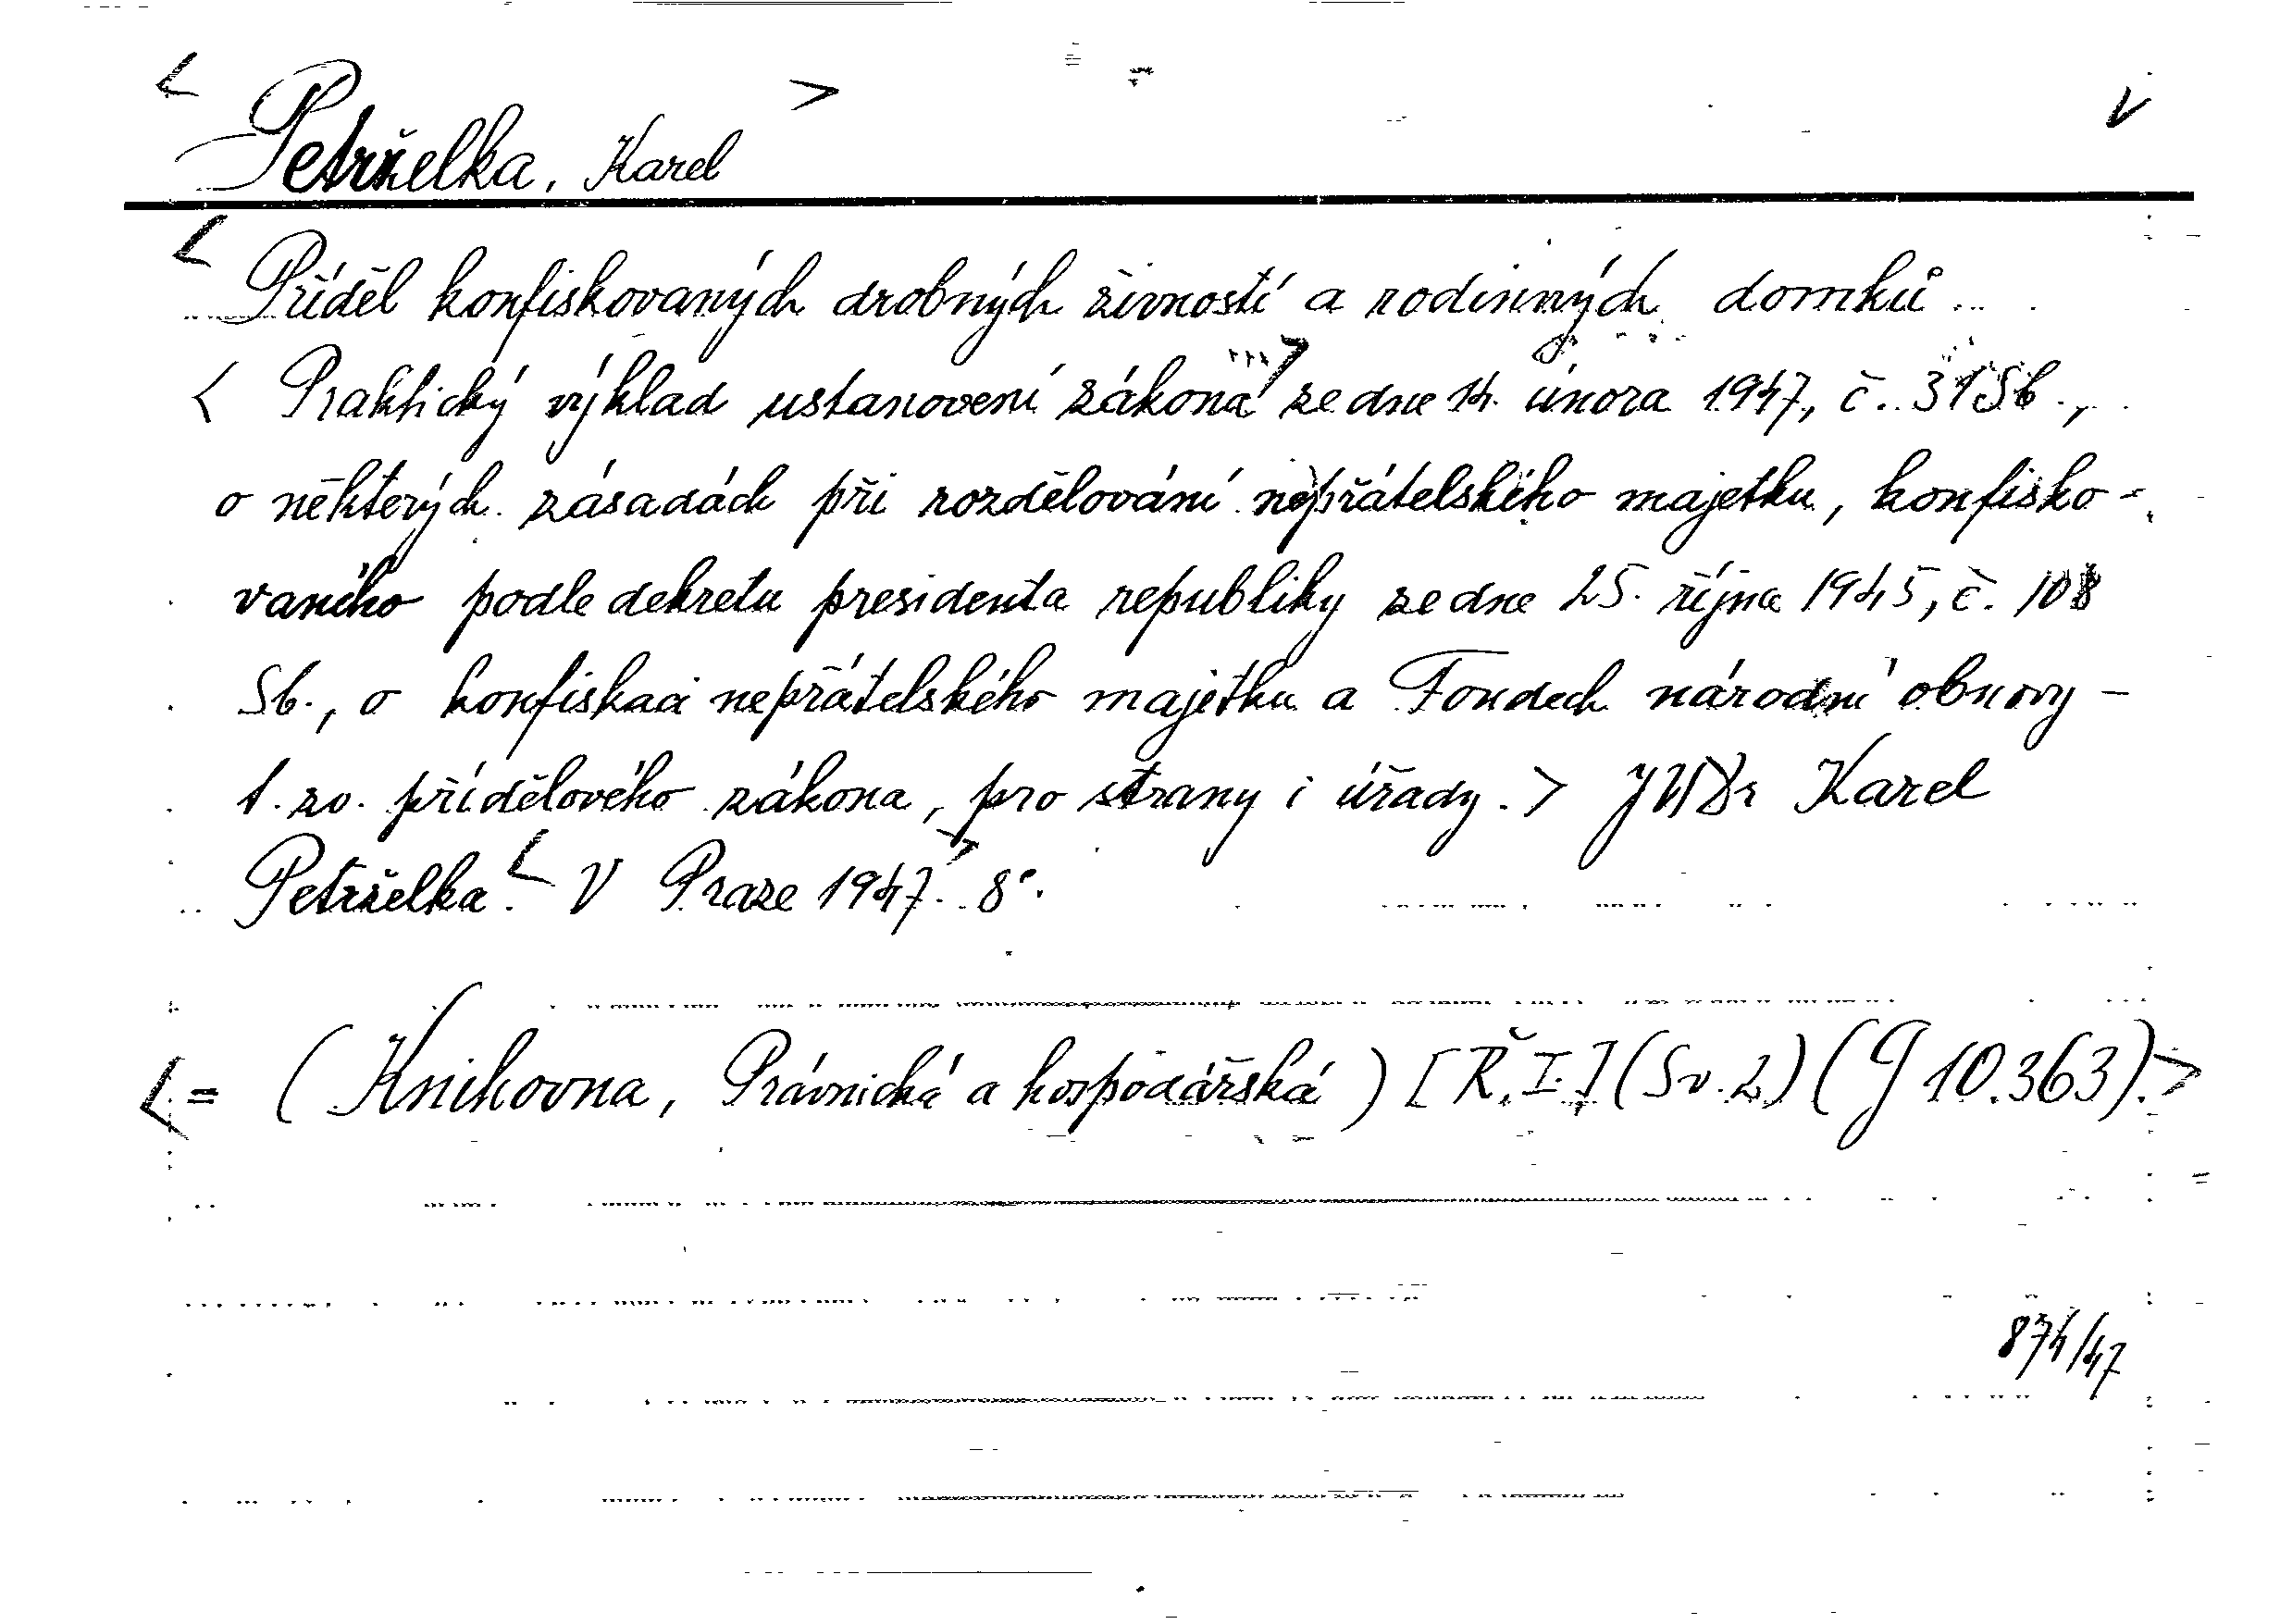 < Petrželka, Karel > V
< Příděl konfiskovaných drobných živností a rodinných domků ...
< Praktický výklad ustanovení zákona ...> ze dne 14. února 1947, č. 31 Sb.,
o některých zásadách při rozdělování nepřátelského majetku, konfisko-
vaného podle dekretu presidenta republiky ze dne 25. října 1945, č. 108
Sb., o konfiskaci nepřátelského majetku a Fondech národní obnovy -
t. zv. přídělového zákona, pro strany i úřady. > JUDr Karel
Petrželka. < V Praze 1947. > 8°.
< = (Knihovna, Právnická a hospodářská) [Ř. I.] (Sv. 2.) (G 10.363). >
874/47